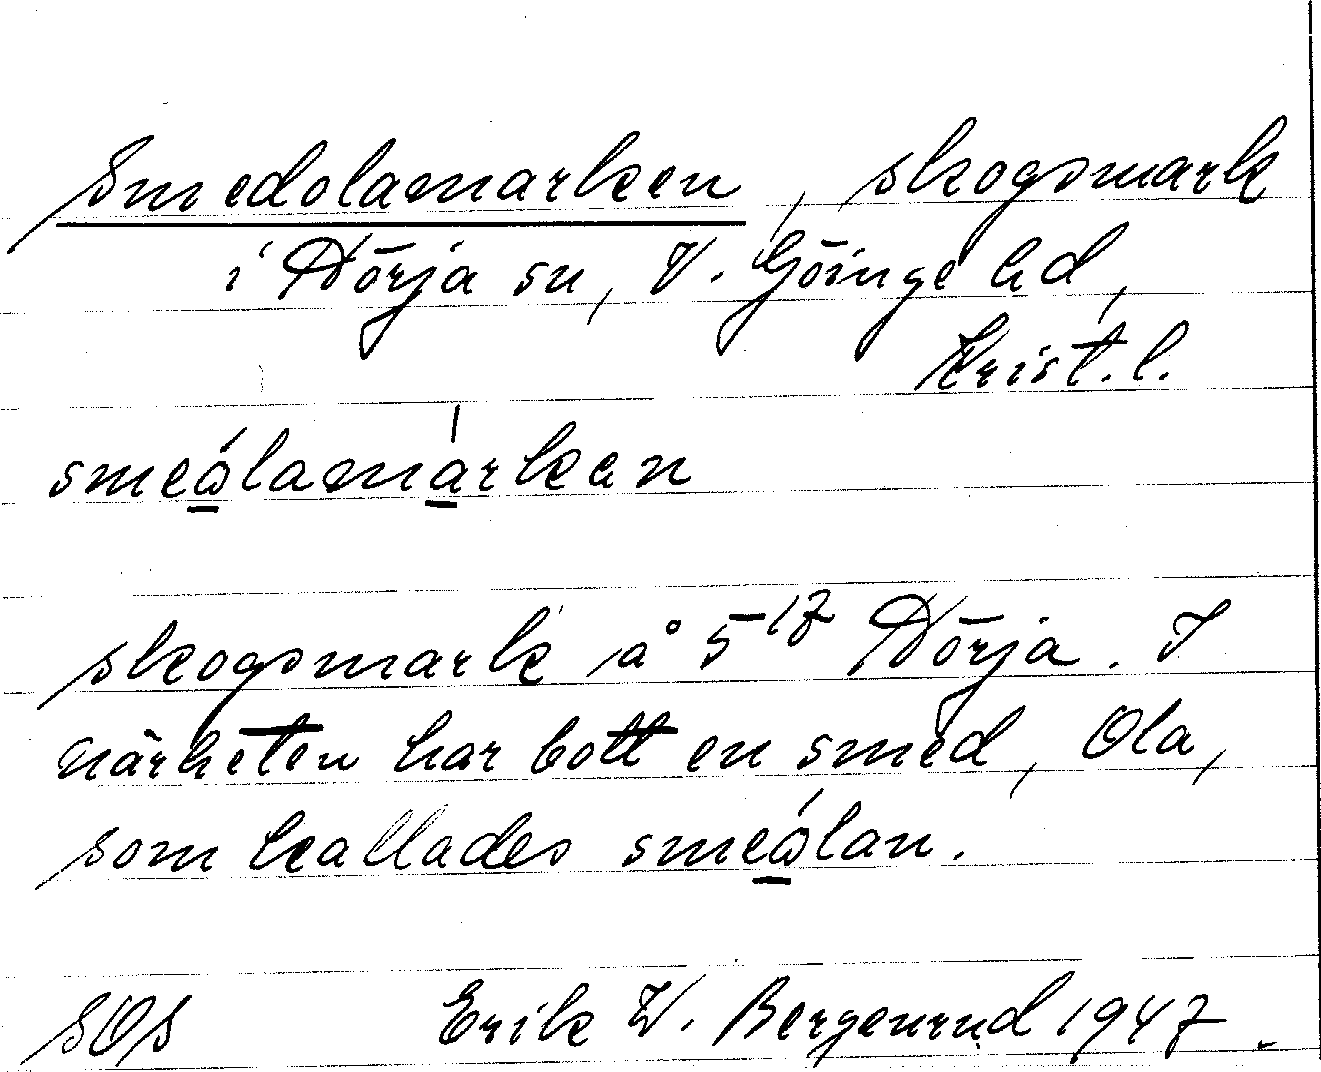 Smedolamarken, skogsmark
i Nörja sn, V. Göinge hd,
Krist. l.
smeǫ́lamárken
skogsmark å 5¹⁷ Nörja. I
närheten har bott en smed, Ola,
som kallades smeǫ́lan.
SOS Erik W. Bergenrud 1947.